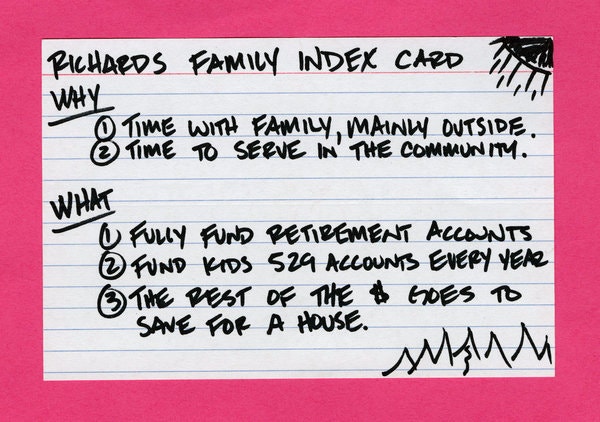 RICHARDS FAMILY INDEX CARD
WHY
① TIME WITH FAMILY, MAINLY OUTSIDE.
② TIME TO SERVE IN THE COMMUNITY.
WHAT
① FULLY FUND RETIREMENT ACCOUNTS
② FUND KIDS 529 ACCOUNTS EVERY YEAR
③ THE REST OF THE $ GOES TO
SAVE FOR A HOUSE.